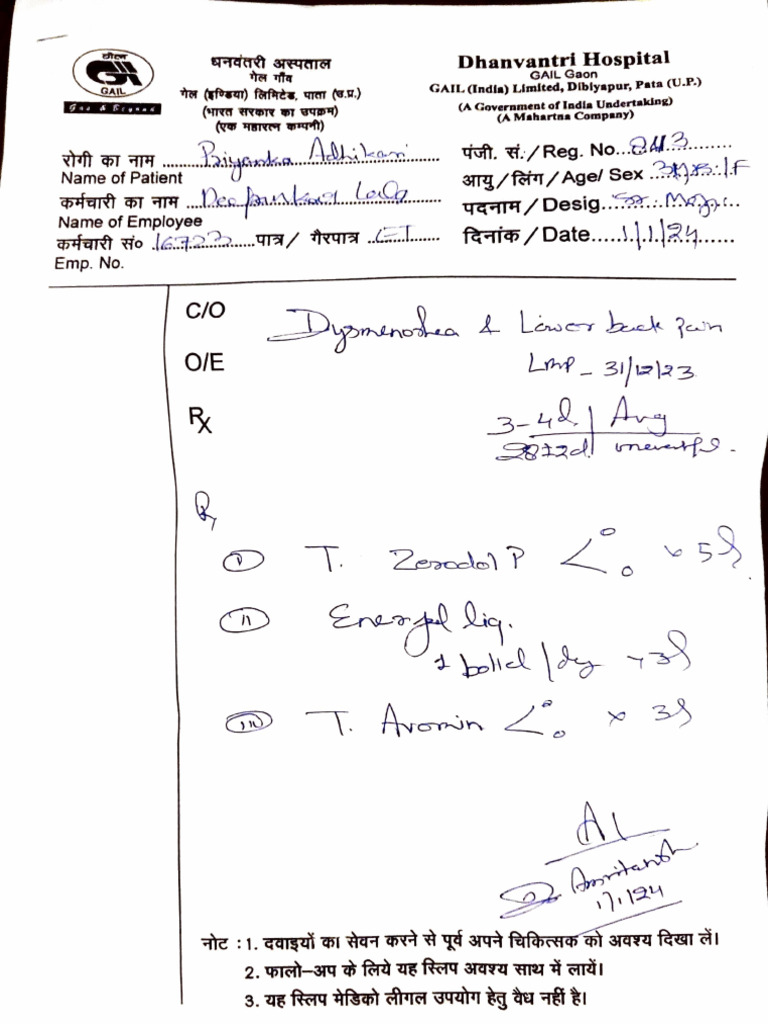 गेल
GAIL
Gas & Beyond
धनवंतरी अस्पताल
गेल गाँव
गेल (इण्डिया) लिमिटेड, पाता (उ.प्र.)
(भारत सरकार का उपक्रम)
(एक महारत्न कम्पनी)
Dhanvantri Hospital
GAIL Gaon
GAIL (India) Limited, Dibiyapur, Pata (U.P.)
(A Government of India Undertaking)
(A Mahartna Company)
रोगी का नाम Priyanka Adhikari
Name of Patient
पंजी. सं./Reg. No.
कर्मचारी का नाम Deepankar
Name of Employee
आयु/लिंग/Age/ Sex
पदनाम/Desig
कर्मचारी सं० 16723 पात्र/ गैरपात्र
Emp. No.
दिनांक/Date 1/1/24
C/O Dysmenorhea & Lower back pain
O/E LMP - 31/12/23
Rx 3-4d / Avg
28±2d
Rx
i) T. Zerodol P < 0 0 x 5d
ii) Enerjel liq.
1 /day x 3d
iii) T. Avomin < 0 0 x 3d
Dr Amritansh
1/1/24
नोट : 1. दवाइयों का सेवन करने से पूर्व अपने चिकित्सक को अवश्य दिखा लें।
2. फालो-अप के लिये यह स्लिप अवश्य साथ में लायें।
3. यह स्लिप मेडिको लीगल उपयोग हेतु वैध नहीं है।